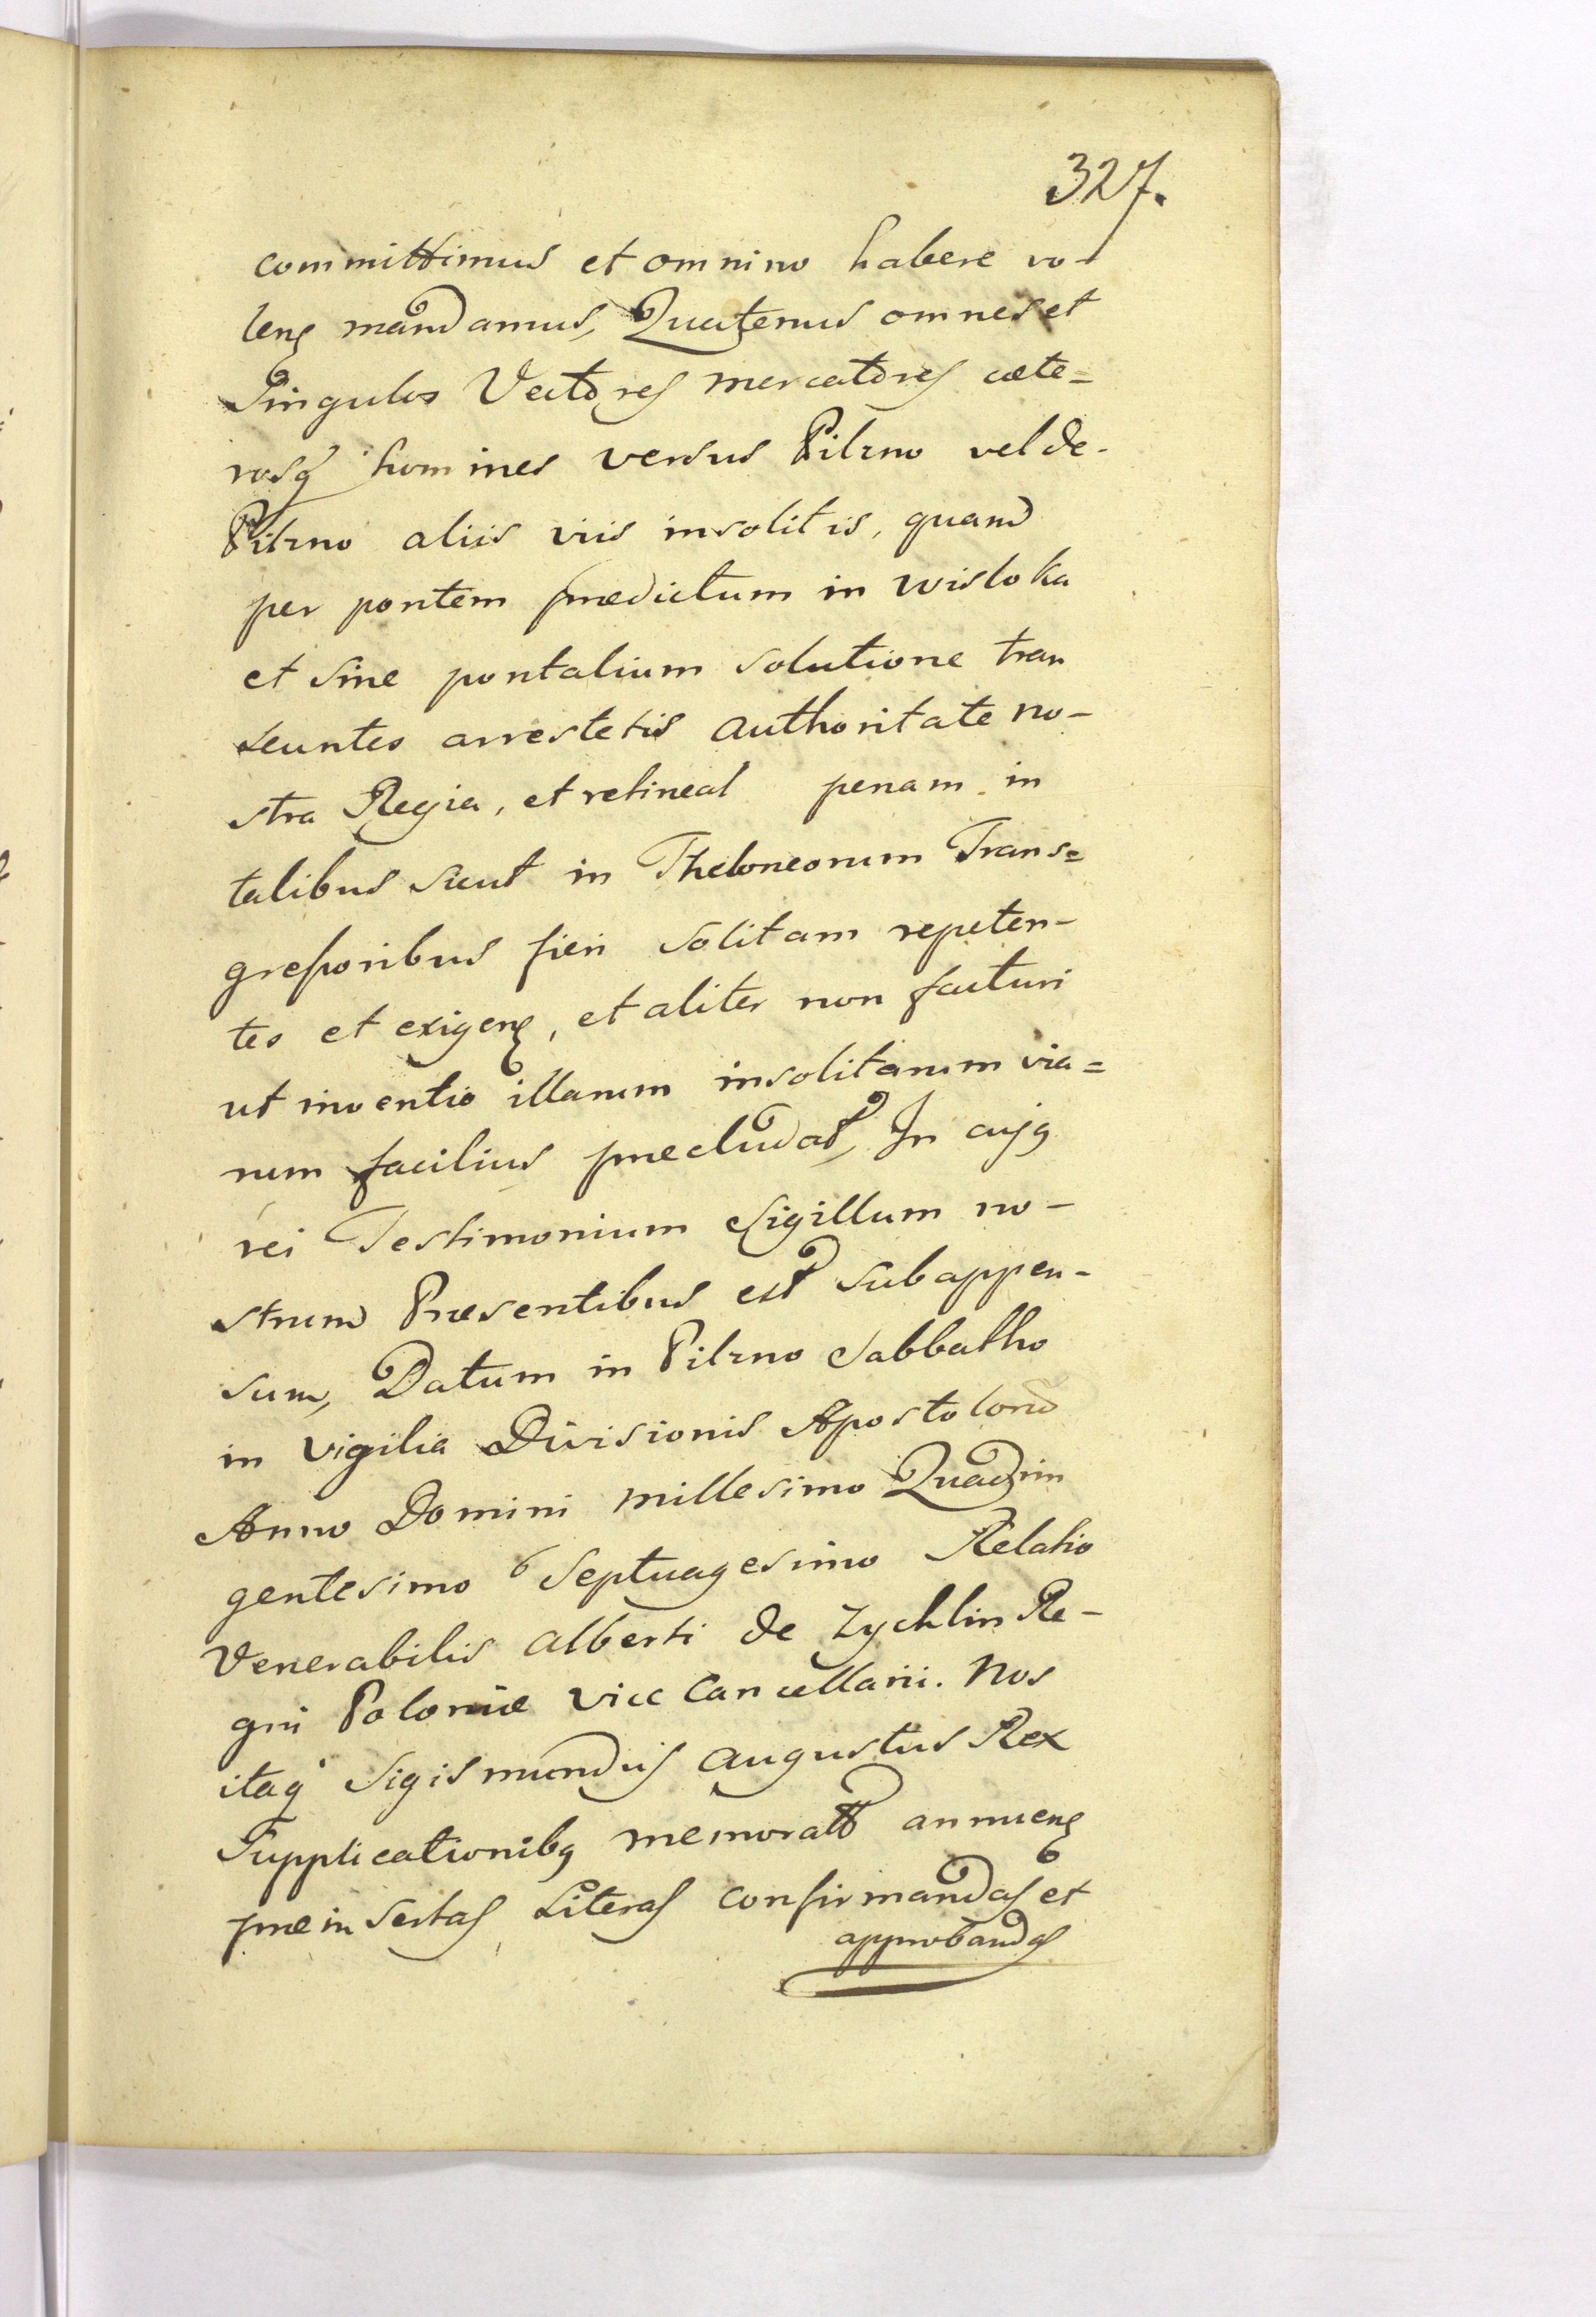 327.
committimus et omnino habere vo-
lens mandamus, Quatenus omnes et
Singulos Vectores mercatores cæte=
rosq homines versus Pilzno vel de-
Pilzno aliis viis insolitis, quam
per pontem prædictum in Wisloka
et sine pontalium solutione tran
seuntes arrestetis authoritate no-
stra Regia, et retineat penam in
talibus sicut in Theloneorum Trans=
gressoribus fieri solitam repeten-
tes et exigens, et aliter non facturi
ut inventio illarum insolitarum via=
rum facilius præcludat, In cujq
rei Testimonium Sigillum no-
strum Præsentibus est subappen-
sum, Datum in Pilzno Sabbatho
in vigilia Divisionis Apostolorum
Anno Domini millesimo Quadrin
gentesimo Septuagesimo Relatio
Venerabilis Alberti de Zychlin Re-
gni Poloniæ Vice Cancellarii. Nos
itaq Sigismundus Augustus Rex
Supplicationibq memoratt annuens
præinsertas Literas confirmandas et
approbandas